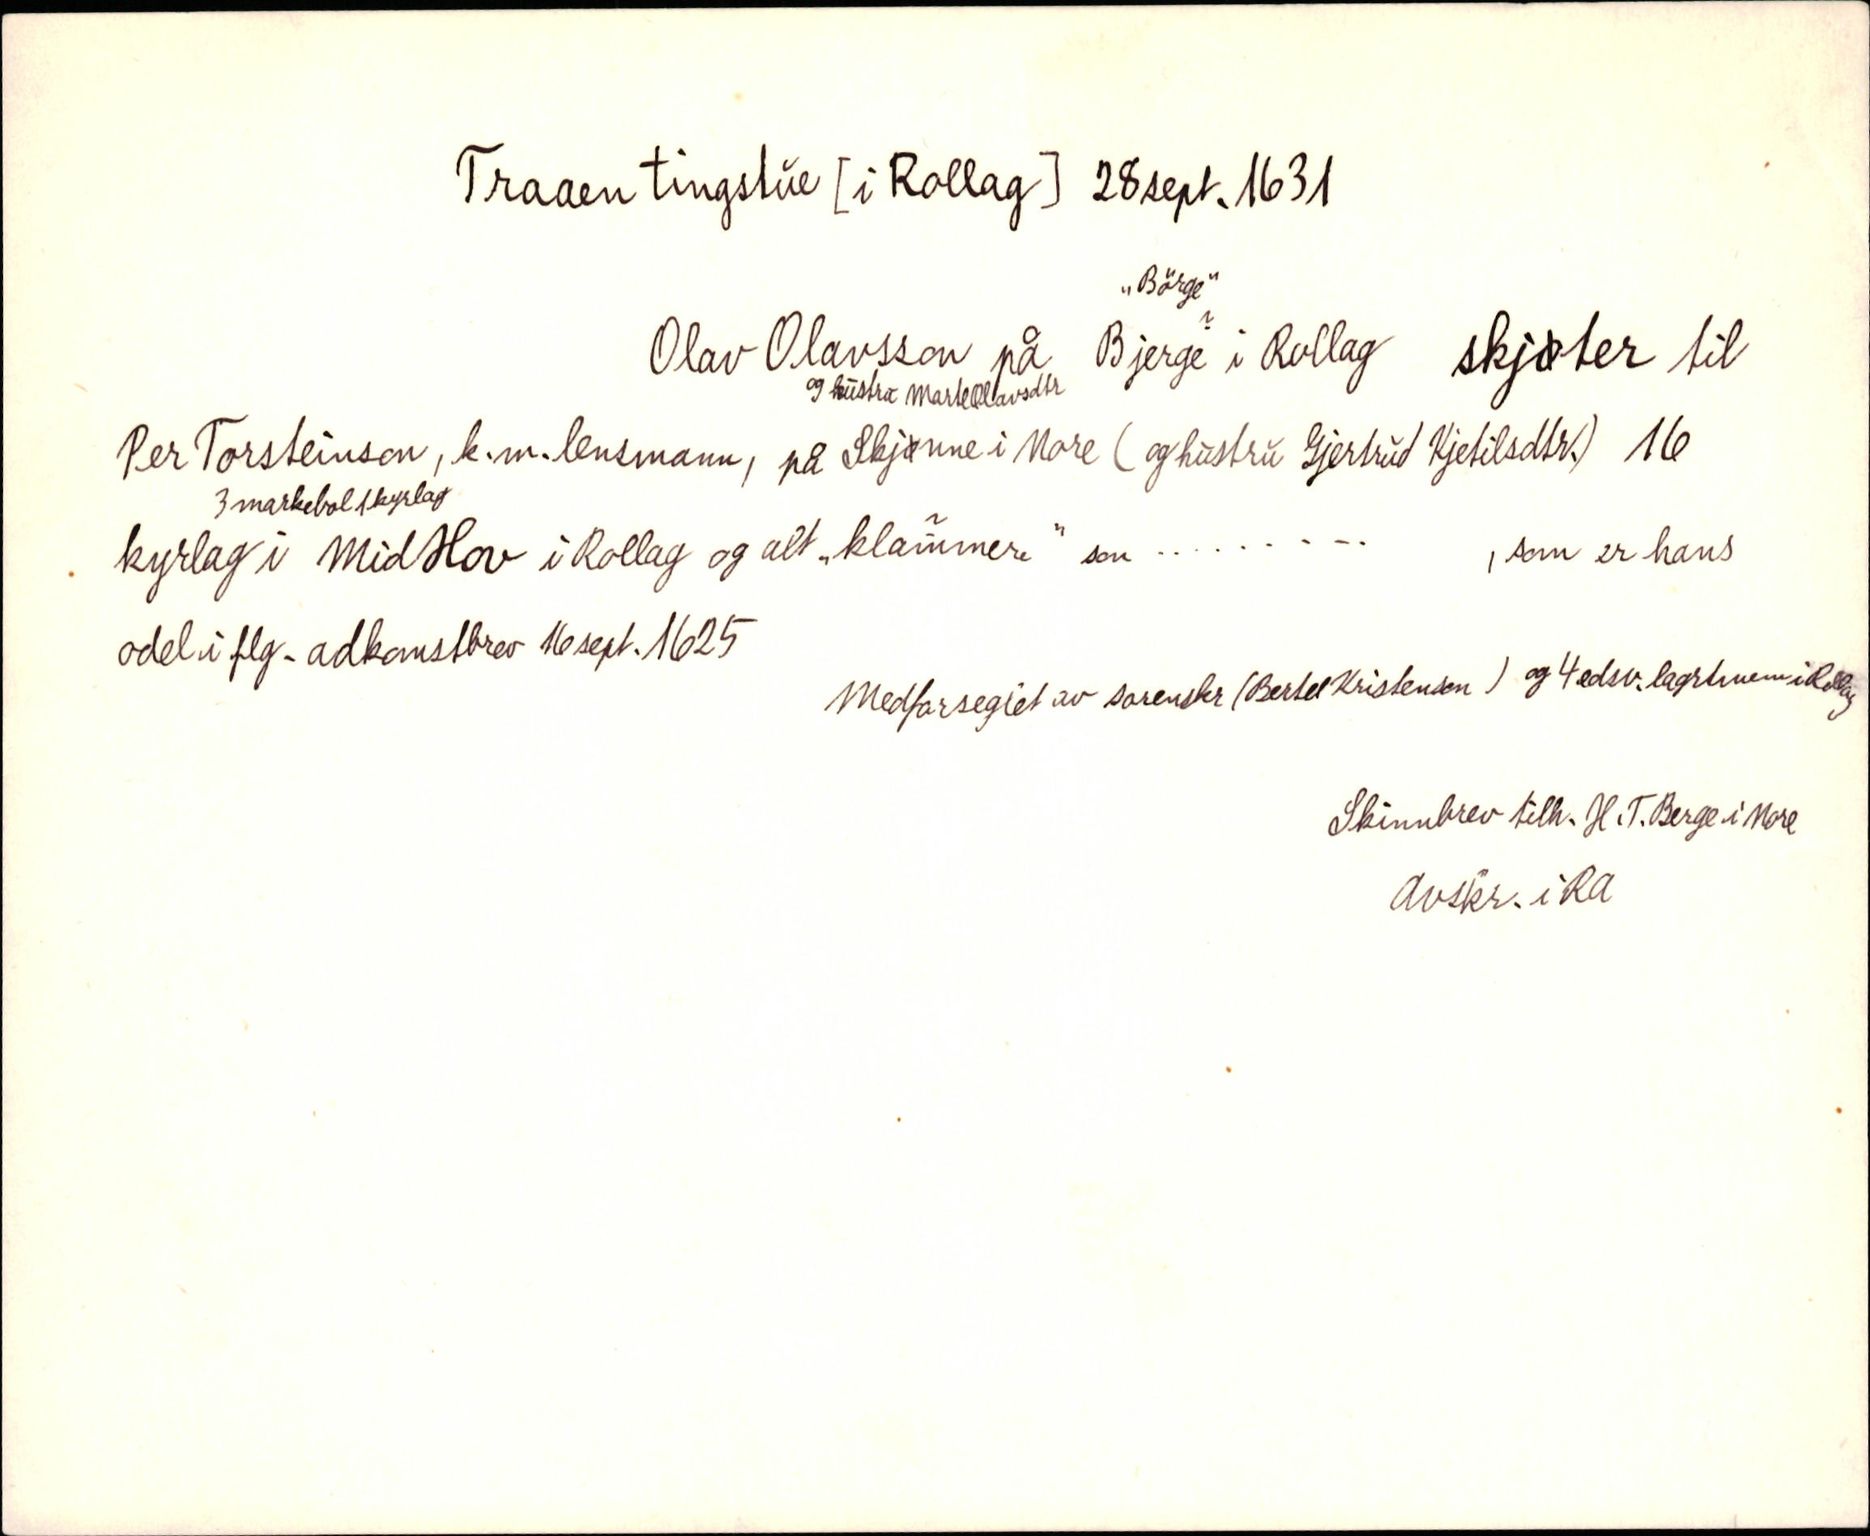 Traaen tingstŭe [i Rollag] 28 sept. 1631
„Börge"
Olav Olavsson på Bjerge ? i Rollag skjøter til
og hŭstrŭ Marte Olavsdtr
Per Torsteinson, k. m. lensmann, på Skjønne i Nore (og hŭstrŭ Gjertrŭd Kjetilsdtr.) 16
3 markebol 1 kyrlag
kyrlag i Mid Hov i Rollag og alt „klammer" som ......... , som er hans
odel i flg. adkomstbrev 16 sept. 1625
Medforseglet av sorenskr (Bertel Kristensen) og 4 edsv. lagrtmenn i Rollag
Skinnbrev tilh. H. T. Berge i Nore
Avskr. i RA